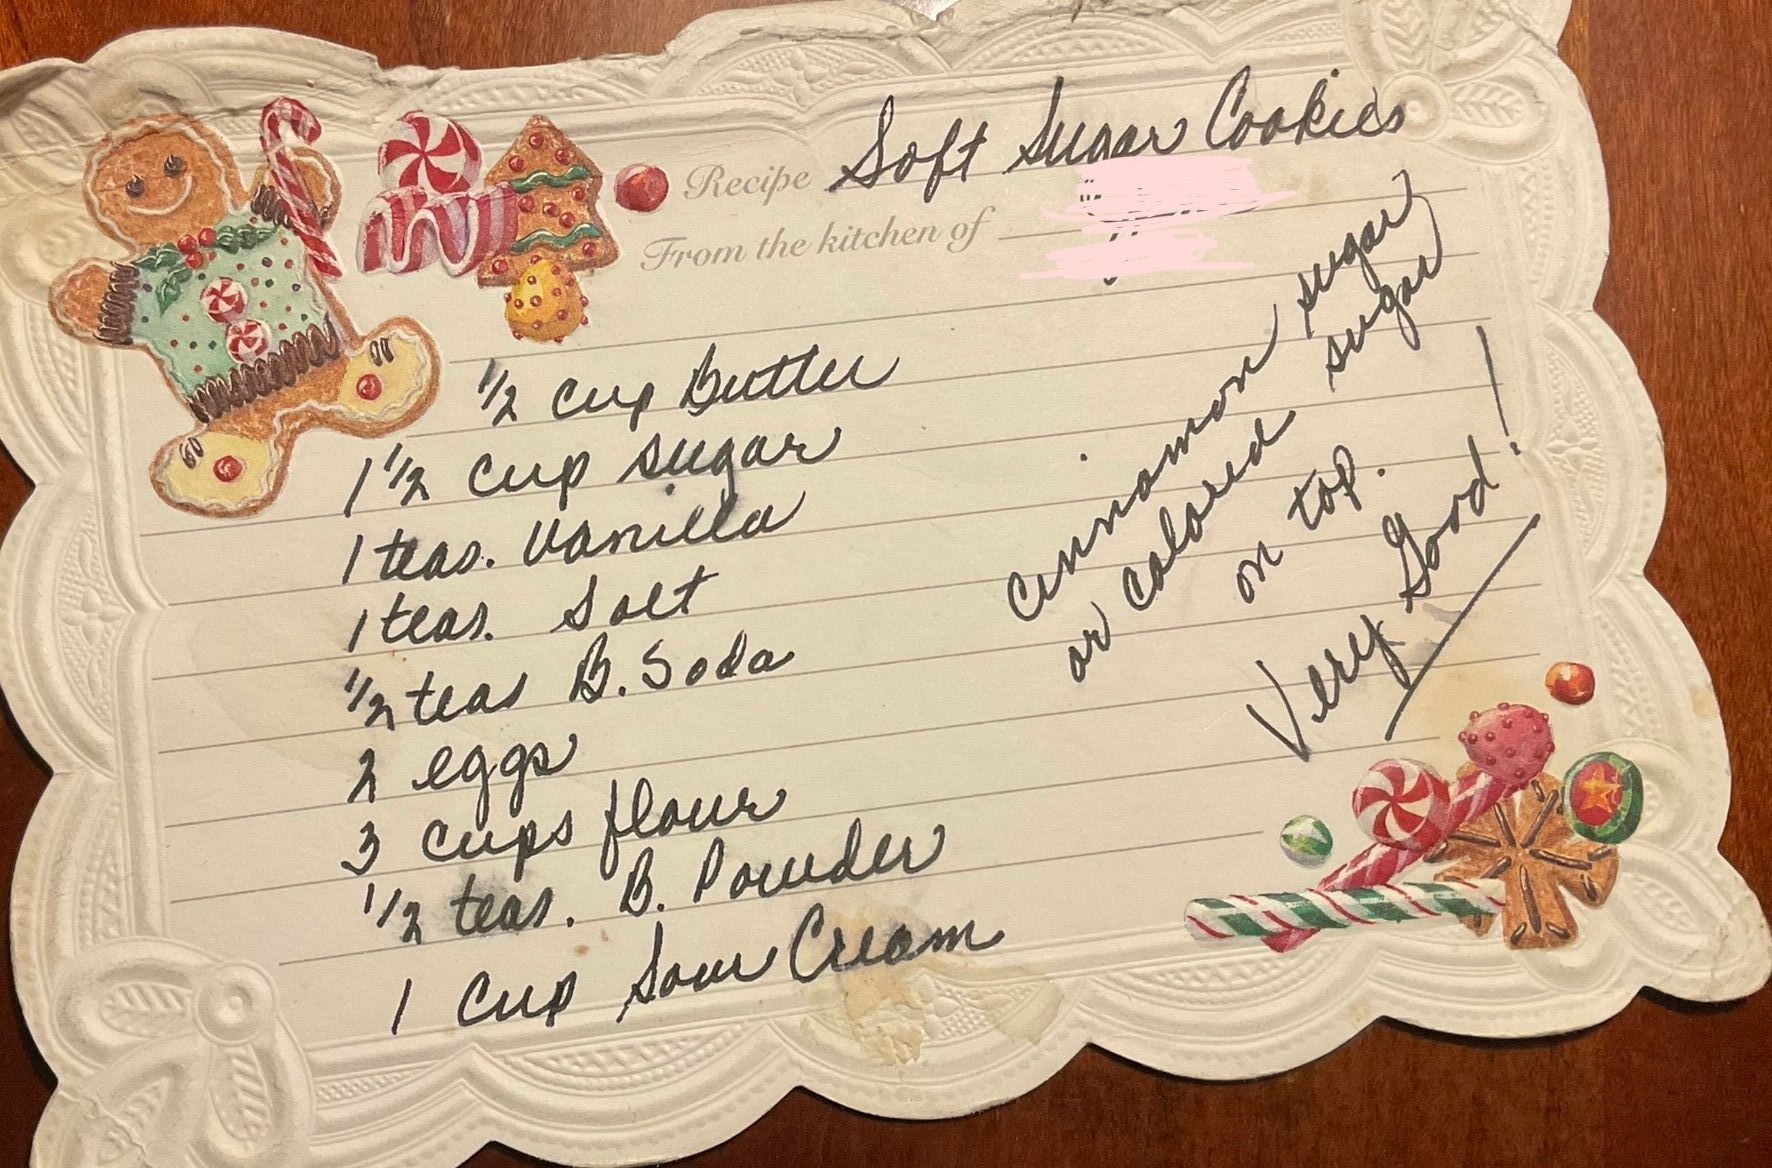 Recipe Soft Sugar Cookies
From the kitchen of
1/2 cup Butter
1 1/2 cup sugar
1 teas. Vanilla
1 teas. Salt
1/2 teas B. Soda
2 eggs
3 cups flour
1/2 teas. B. Powder
1 cup Sour Cream
cinnamon sugar
or colored sugar
on top.
Very Good!